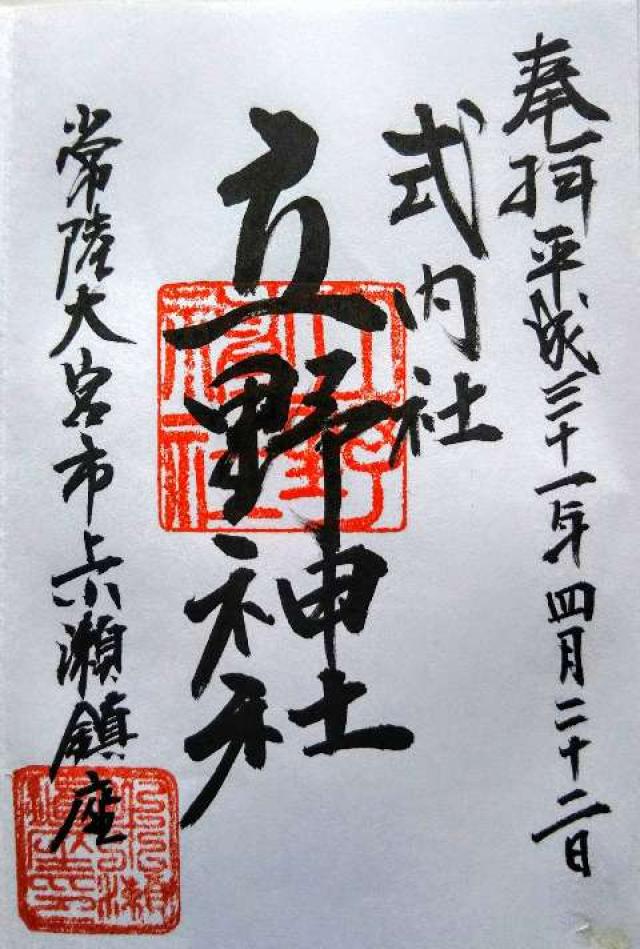 奉拝 平成三十一年四月二十二日
式内社
立野神社
常陸大宮市上小瀬鎮座
立野
神社